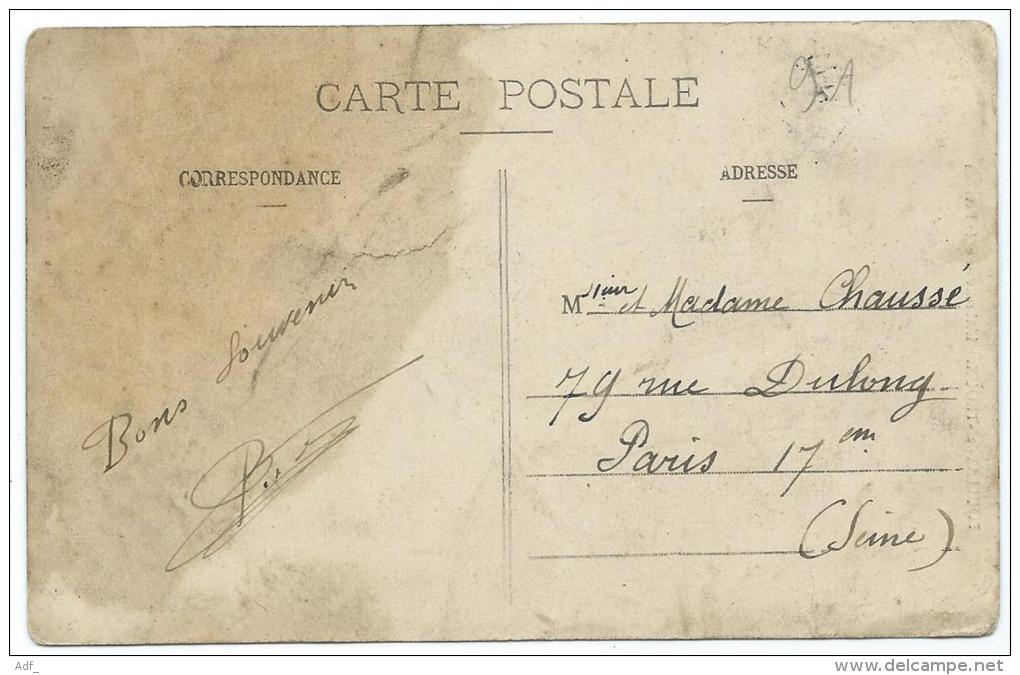 CARTE POSTALE
CORRESPONDANCE
ADRESSE
Bons Souvenir
Msieur et Madame Chaussé
79 rue Dulong
Paris 17em
(Seine)
Adf_
www.delcampe.net